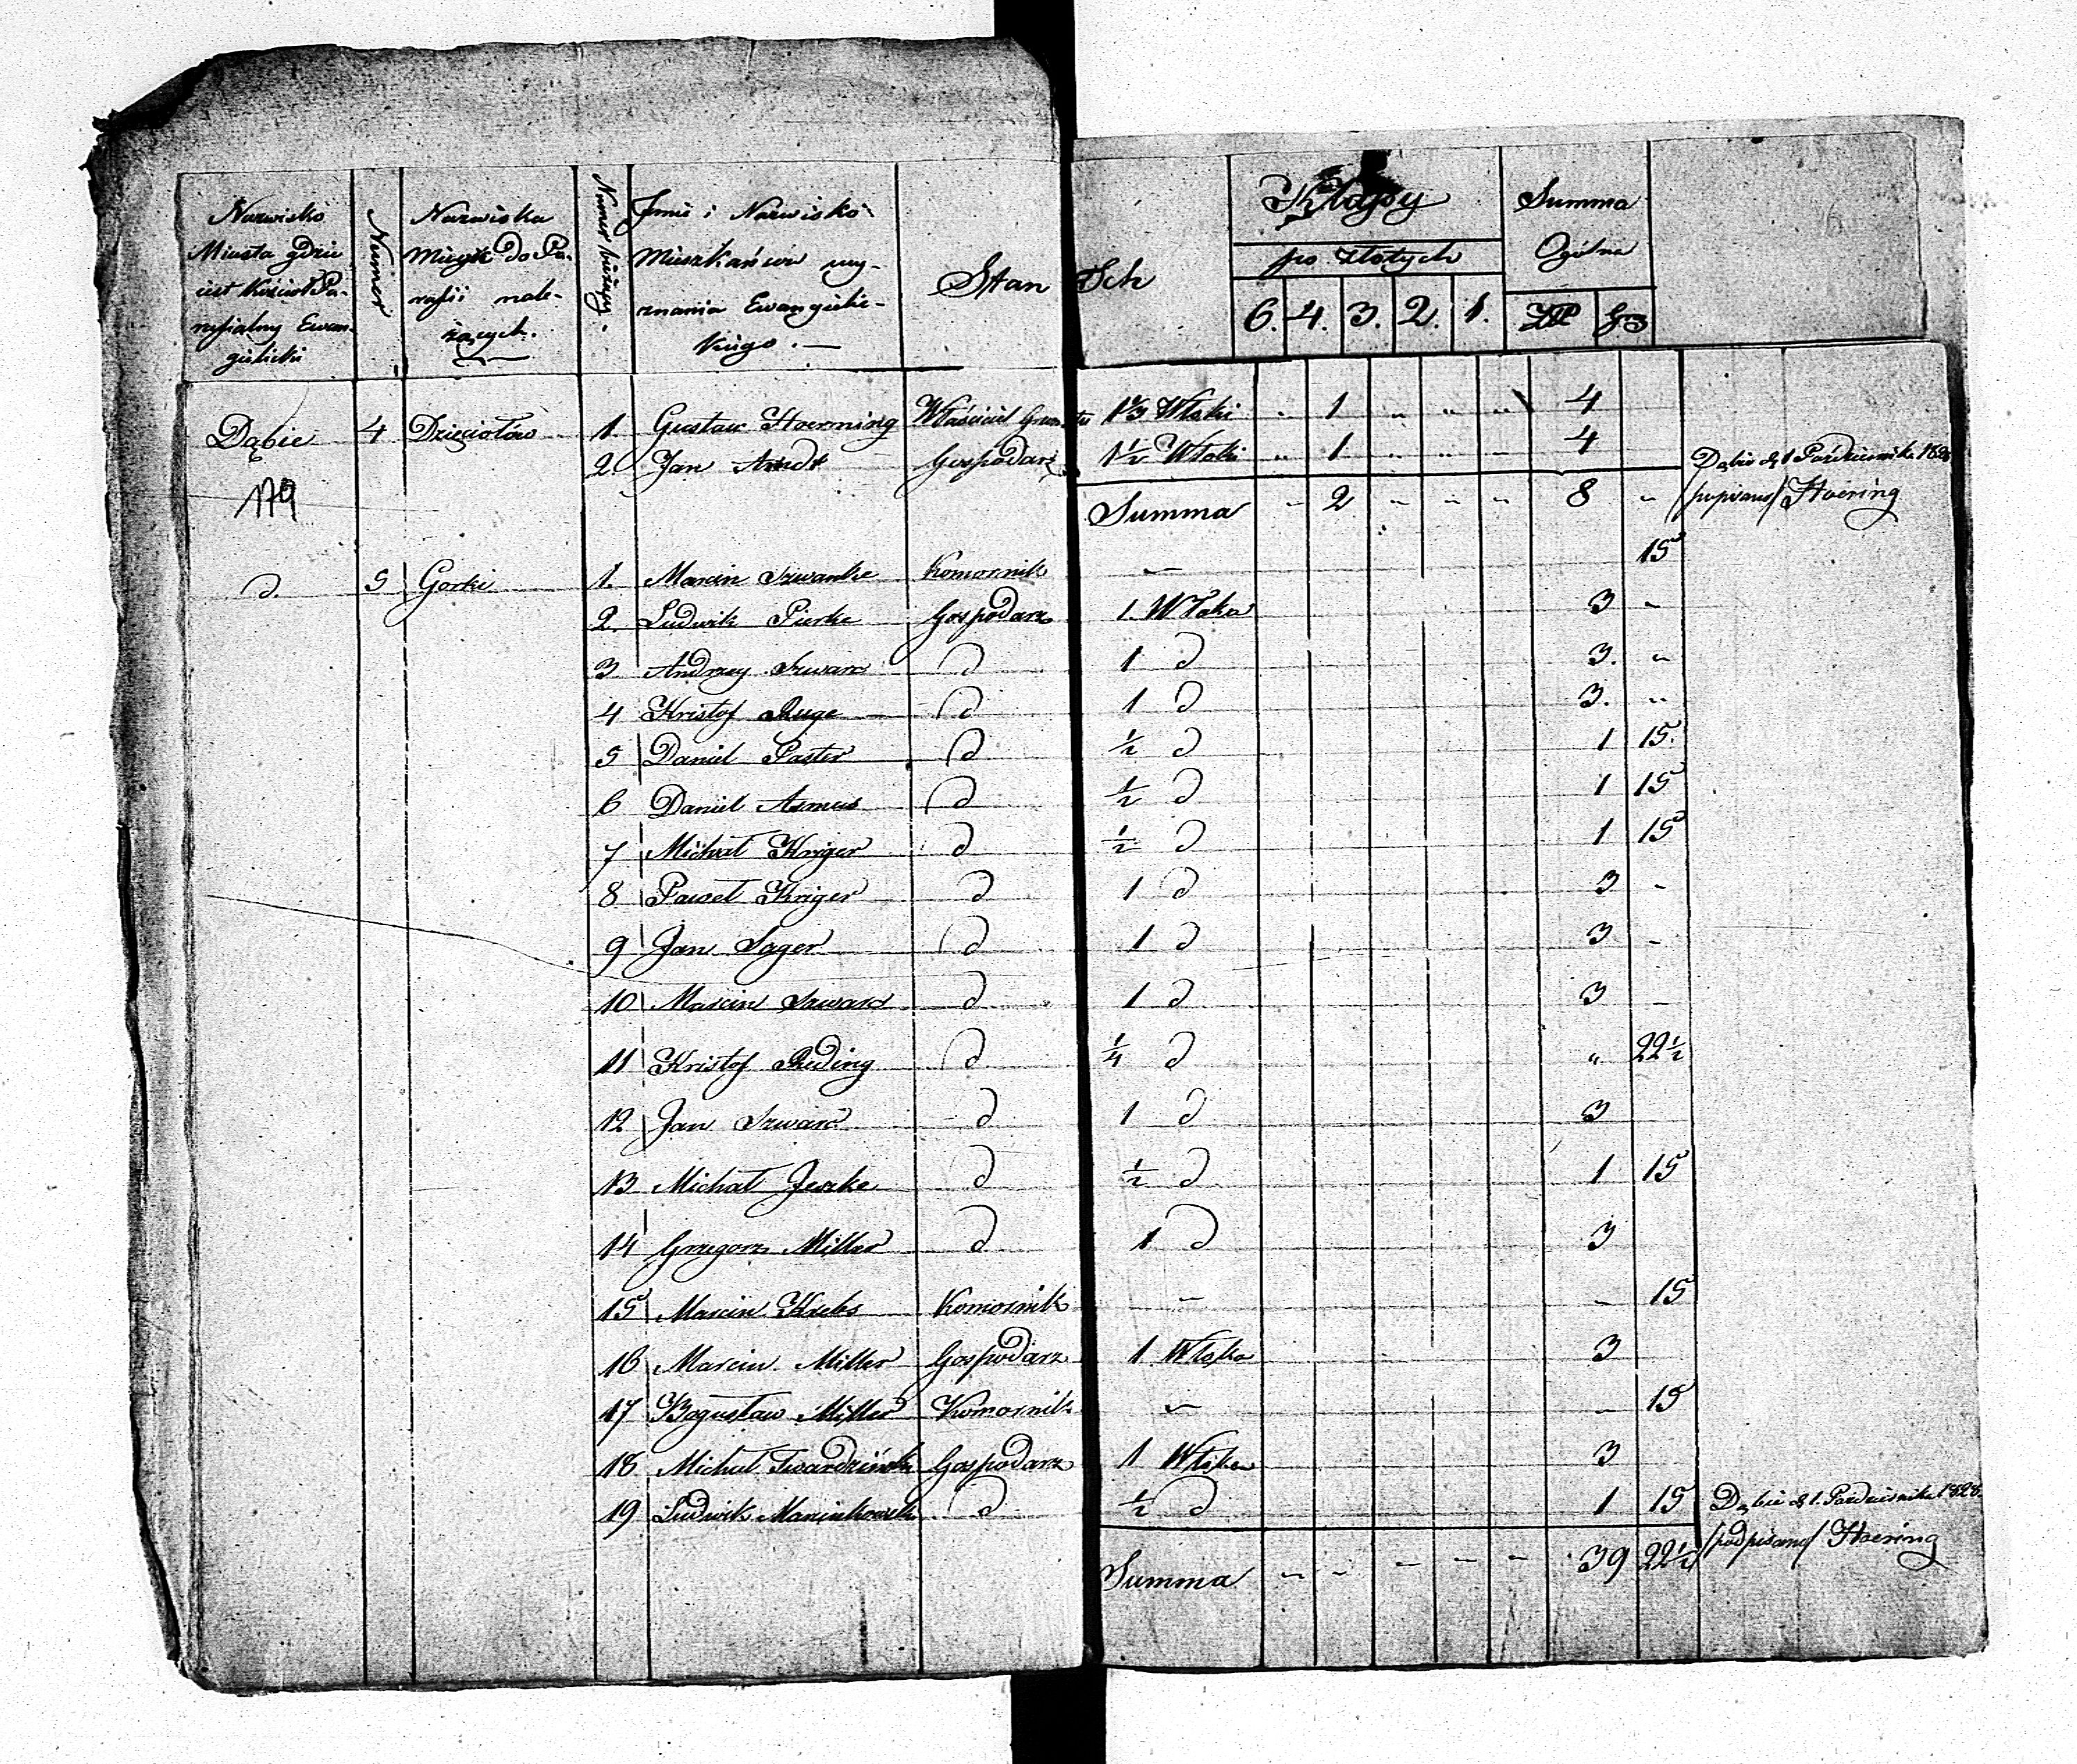 Nazwisko Miasta gdzie iest Kościoł Parafialny Ewangielicki
Numer
Nazwiska Mieysc do Parafii należących.
Numer bieżący.
Jmie i Nazwisko Mieszkańców wyznania Ewangielickiego.—
Stan Ich
Klassy
po złotych
6. 4. 3. 2. 1.
Summa Ogólna
ZłP Gr
Dąbie 4 Dzięciołow 1. Gustaw Hoerning Właściciel Gruntu 1 2/3 Włoki „ 1 „ „ „ 4
2. Jan Arndt Gospodarz 1 1/2 Włoki „ 1 „ „ „ 4
179
Summa - 2 - - - 8 -
Dąbie d 1 Pazdziernika 1828
/podpisano/ Hoering
d. 5 Gorki 1. Marcin Szwanke Komornik — 15
2. Ludwik Pierke Gospodarz 1. Włoka 3 -
3 Andrzey Szwarc d 1 d 3. „
4 Kristof Ruge d 1 d 3. „
5 Daniel Paster d 1/2 d 1 15.
6 Daniel Asmus d 1/2 d 1 15
7 Michał Kriger d 1/2 d 1 15
8 Paweł Kriger d 1 d 3 -
9 Jan Sager d 1 d 3 -
10 Marcin Szwarc d 1 d 3 -
11 Kristof Reding d 1/4 d „ 22 1/2
12 Jan Szwarc d 1 d 3
13 Michał Jeszke d 1/2 d 1 15
14 Grzegorz Miller d 1 d 3
15 Marcin Komornik — - 15
16 Marcin Miller Gospodarz 1 Włoka 3
17 Bogusław Miller Komornik — - 15
18 Michał Twardzinski Gospodarz 1 Włoka 3
19 Ludwik Marcinkowski d 1/2 d 1 15
Summa - - - - - 39 22 1/2
Dąbie d 1. Pazdziernika 1828.
/podpisano/ Hoering